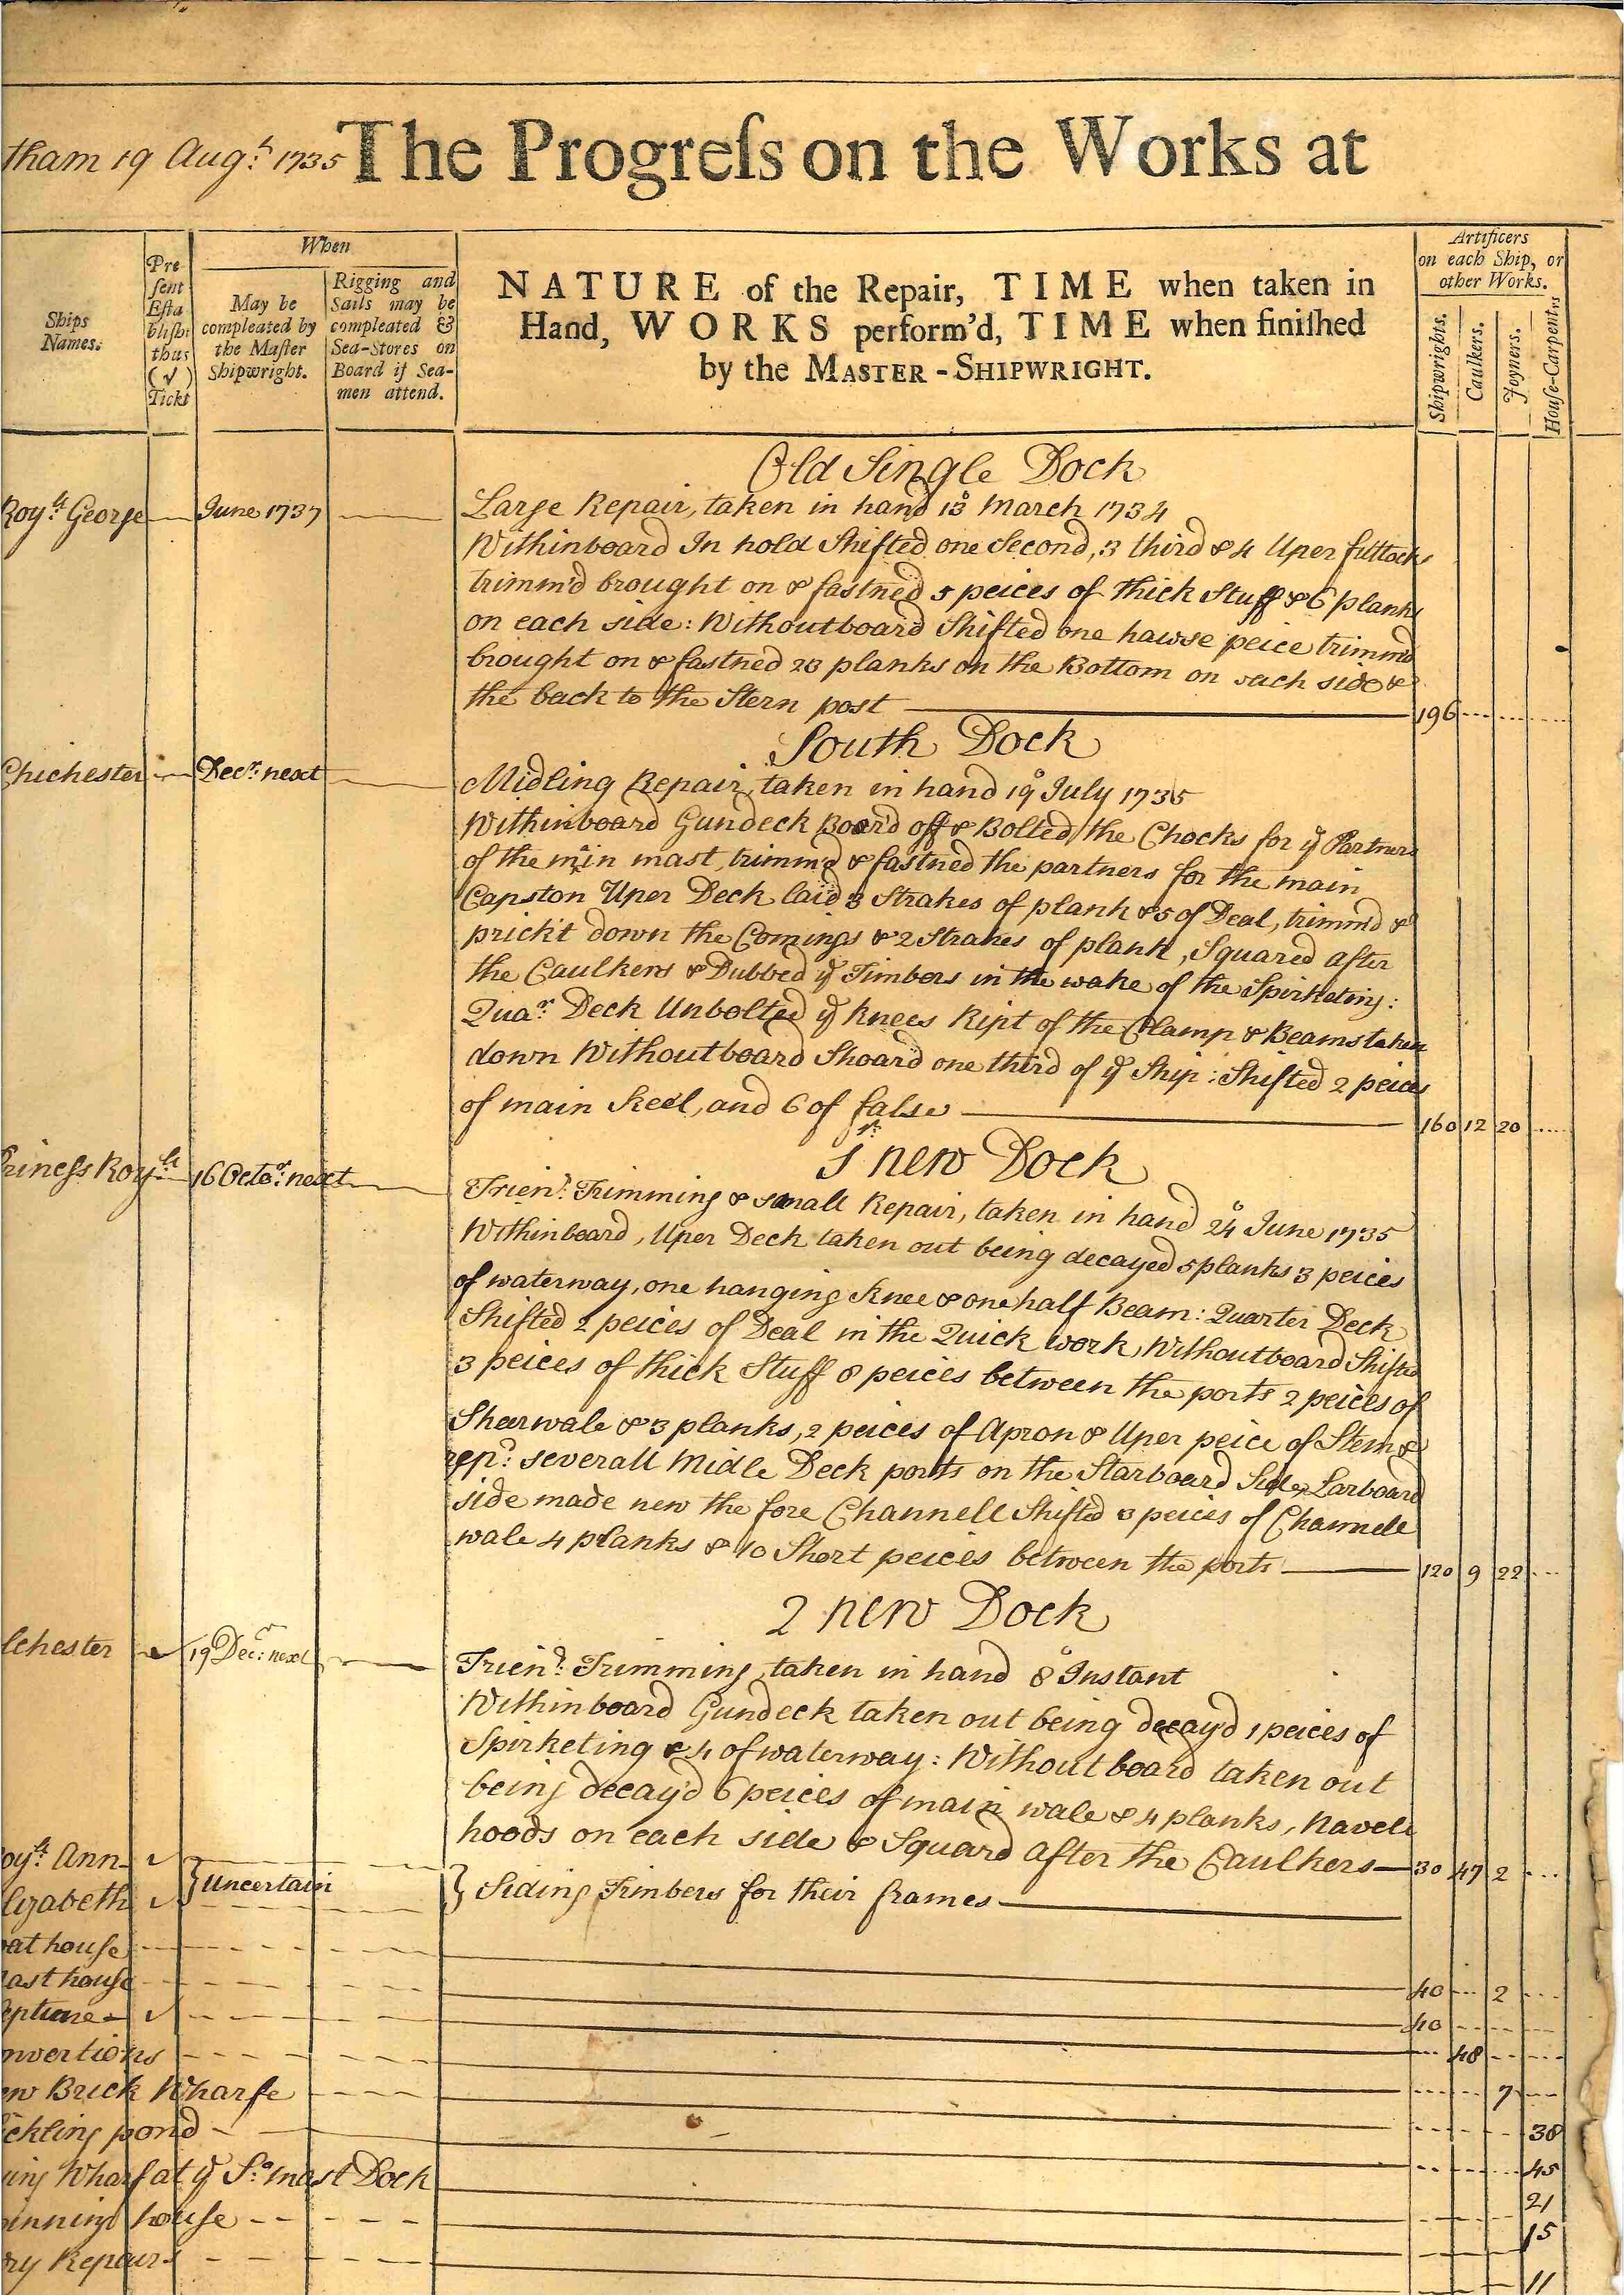 tham 19 Augt. 1735 The Progreſs on the Works at
Ships
Names.
Pre
ſent
Eſta
bliſh:
thus
(√)
Tickt
When
May be
compleated by
the Maſter
Shipwright.
Rigging and
Sails may be
compleated &
Sea-Stores on
Board if Sea-
men attend.
NATURE of the Repair, TIME when taken in
Hand, WORKS perform'd, TIME when finiſhed
by the MASTER-SHIPWRIGHT.
Artificers
on each Ship, or
other Works.
Shipwrights.
Caulkers.
Joyners.
Houſe-Carpenters
Old Single Dock
Roy.ll George June 1737 Large Repair, taken in hand 13 March 1734
Withinboard In hold Shifted one Second, 3 third & 4 Uper futtocks
trimm'd brought on & fastned 5 peices of thick Stuff & 6 planks
on each side: Withoutboard Shifted one hawse peice trimmd
brought on & fastned 23 planks on the Bottom on each side &
the back to the Stern post 196
South Dock
Chichester Decr. next Midling Repair, taken in hand 19 July 1735
Withinboard Gundeck Boar'd off & Bolted the Chocks for ye Partners
of the main mast, trimm'd & fastned the partners for the main
Capston Uper Deck laid 3 Strakes of plank & 5 of Deal, trimmd &
prickt down the Comings & 2 Strakes of plank, Squared after
the Caulkers & Dubbed ye Timbers in the wake of the Spirketing:
Quar. Deck Unbolted ye knees Ript of the Clamp & Beams taken
down Withoutboard Shoard one third of ye Ship: Shifted 2 peices
of main keel, and 6 of false 160 12 20
1st new Dock
Princeſs Roy.ll 16 Octor. next Trien.l Trimming & small Repair, taken in hand 24 June 1735
Withinboard, Uper Deck taken out being decayed 5 planks 3 peices
of waterway, one hanging knee & one half Beam: Quarter Deck
Shifted 2 peices of Deal in the Quick work, Withoutboard Shifted
3 peices of thick Stuff 8 peices between the ports 2 peices of
Sheerwale & 3 planks, 2 peices of Apron & Uper peice of Stem &
repd. severall midle Deck ports on the Starboard Side, Larboard
side made new the fore Channell Shifted 3 peices of Channell
wale 4 planks & 10 Short peices between the ports 120 9 22
2 new Dock
lchester √ 19 Decr. next Trien.l Trimming, taken in hand 8 Instant
Withinboard Gundeck taken out being decay'd 1 peices of
Spirketing & 4 of waterway: Without board taken out
being decay'd 6 peices of main wale & 4 planks, Navell
hoods on each side & Squard after the Caulkers 30 47 2
oy.ll Ann √
lizabeth √ } Uncertain } Siding Timbers for their frames
oat house 40 2
ast houſe 40
eptune √ 48
nvertions 7
ew Brick Wharfe 38
ckling pond 45
ing Wharf at ye So. mast Dock 21
inning houſe 15
ry Repairs 11